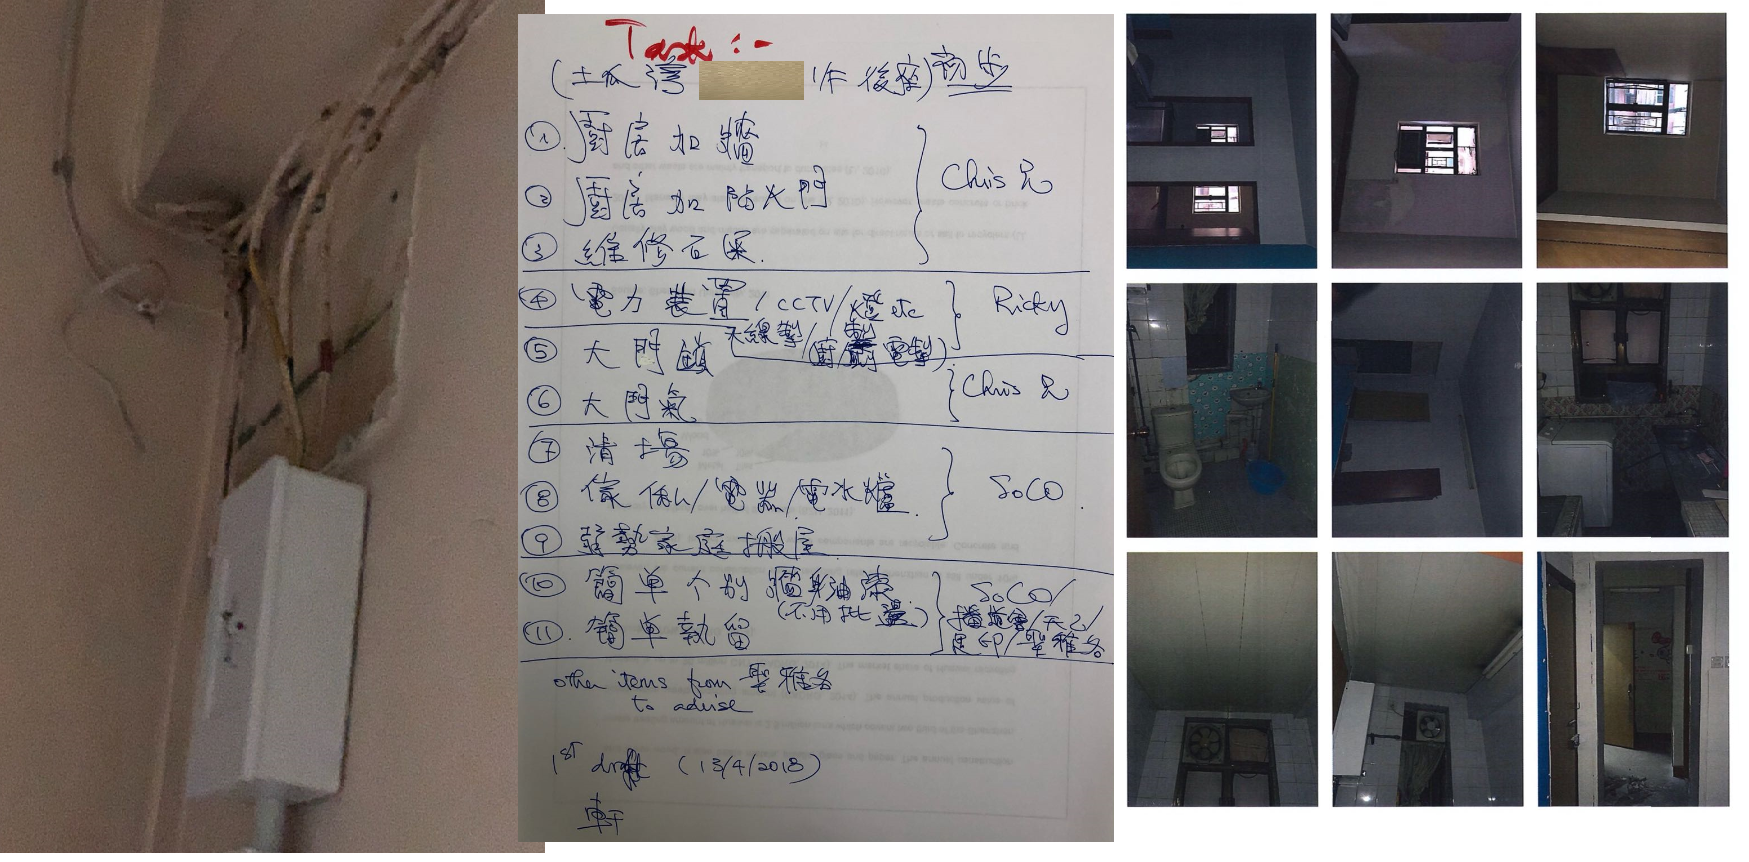 Task :-
(土瓜湾 1/F 後座) 初步
① 廚房加牆
② 廚房加防火門
③ 維修石屎.
Chris 兄
④ 電力裝置 / CCTV / 燈 etc
天線掣 / (廚 電掣)
Ricky
⑤ 大門鎖
⑥ 大門氣
Chris 兄
⑦ 清場
⑧ 傢俬 / 電器 / 電水爐.
⑨ 弱勢家庭搬屋
SoCO.
⑩ 簡单个別牆身油漆
(不用批盪)
⑪. 簡单執留
SoCO /
播道會 / 天己 /
足印 / 聖雅各
other items from 聖雅各
to advise
1ST draft (13/4/2018)
軒